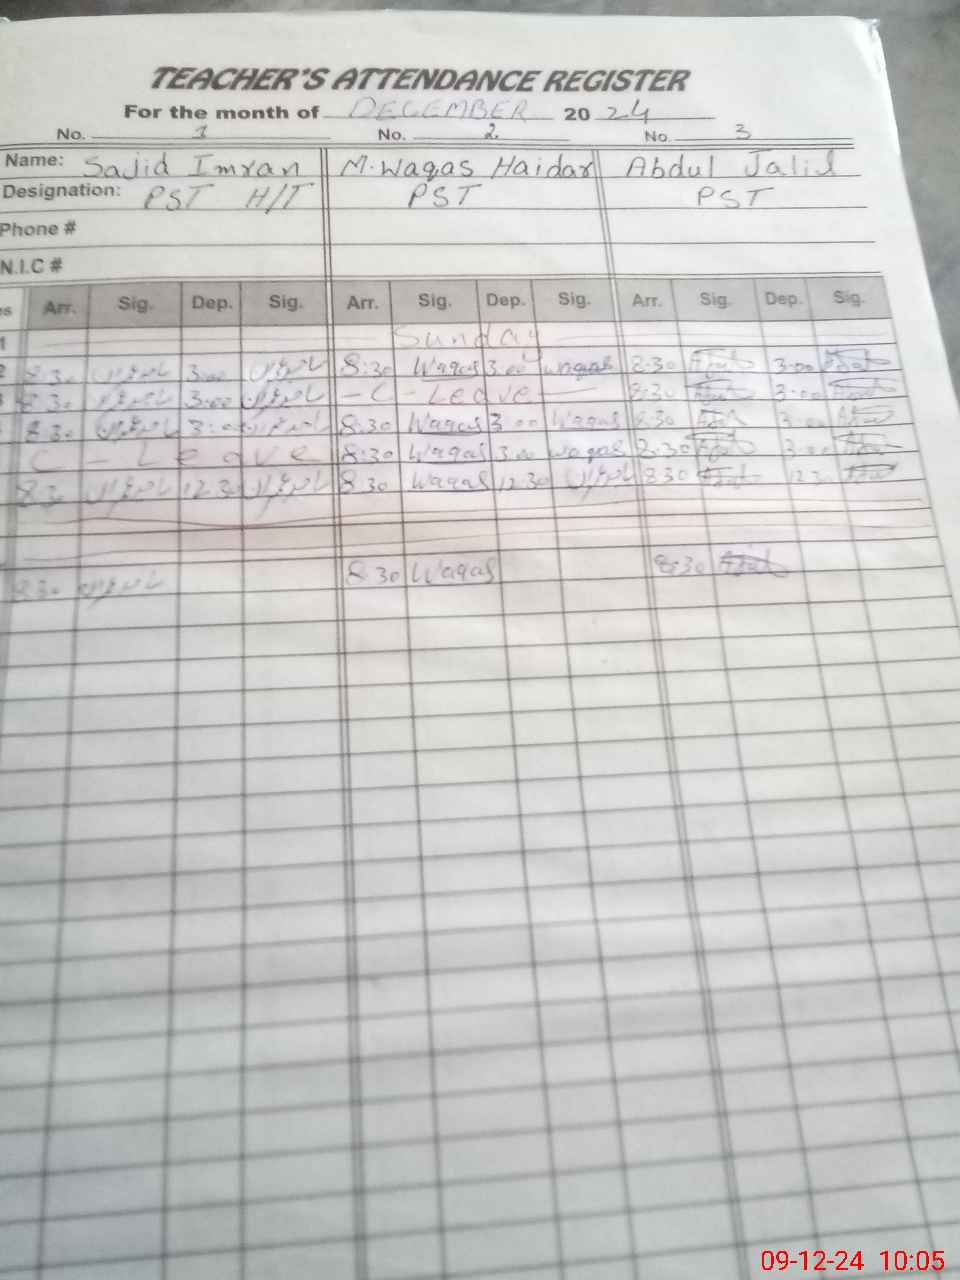 TEACHER'S ATTENDANCE REGISTER
For the month of DECEMBER 2024
No. 1 No. 2 No. 3
Name: Sajid Imran M.Waqas Haidar Abdul Jalil
Designation: PST H/T PST PST
Phone #
N.I.C #
Arr. Sig. Dep. Sig. Arr. Sig. Dep. Sig. Arr. Sig. Dep. Sig.
1 Sunday
2 8:30 3:00 8:30 Waqas 3:00 waqas 8:30 3:00
8:30 3:00 - C - Leave 8:30 3:00
8:30 3:00 8:30 Waqas 3:00 Waqas 8:30 3:00
C - Leave 8:30 Waqas 3:00 waqas 8:30 3:00
8:30 12:30 8:30 Waqas 12:30 8:30 12:30
8:30 8:30 Waqas 8:30
09-12-24 10:05